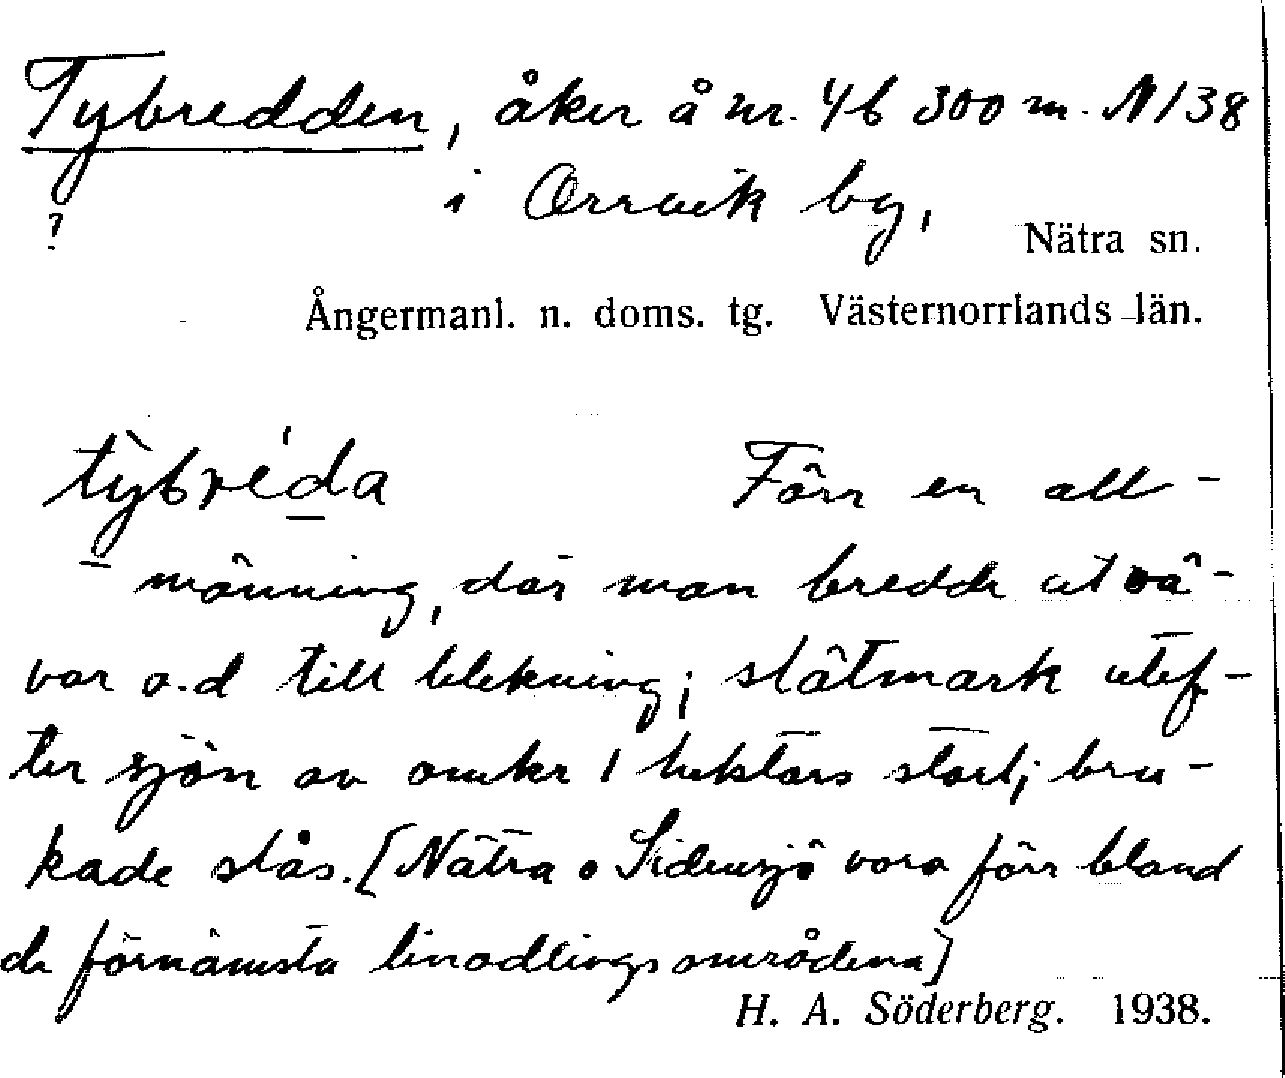 Tybredden, åker å nr. 4b 300 m. N 138
? i Orrvik by,
Nätra sn.
Ångermanl. n. doms. tg. Västernorrlands län.
tỳbréda Förr en all-
männing, där man bredde ut vä-
var o.d till blekning; slåtmark utef-
ter sjön av omkr 1 hektars storl; bru-
kade slås. [Nätra o Sidensjö voro förr bland
de förnämsta linodlingsområdena]
H. A. Söderberg. 1938.